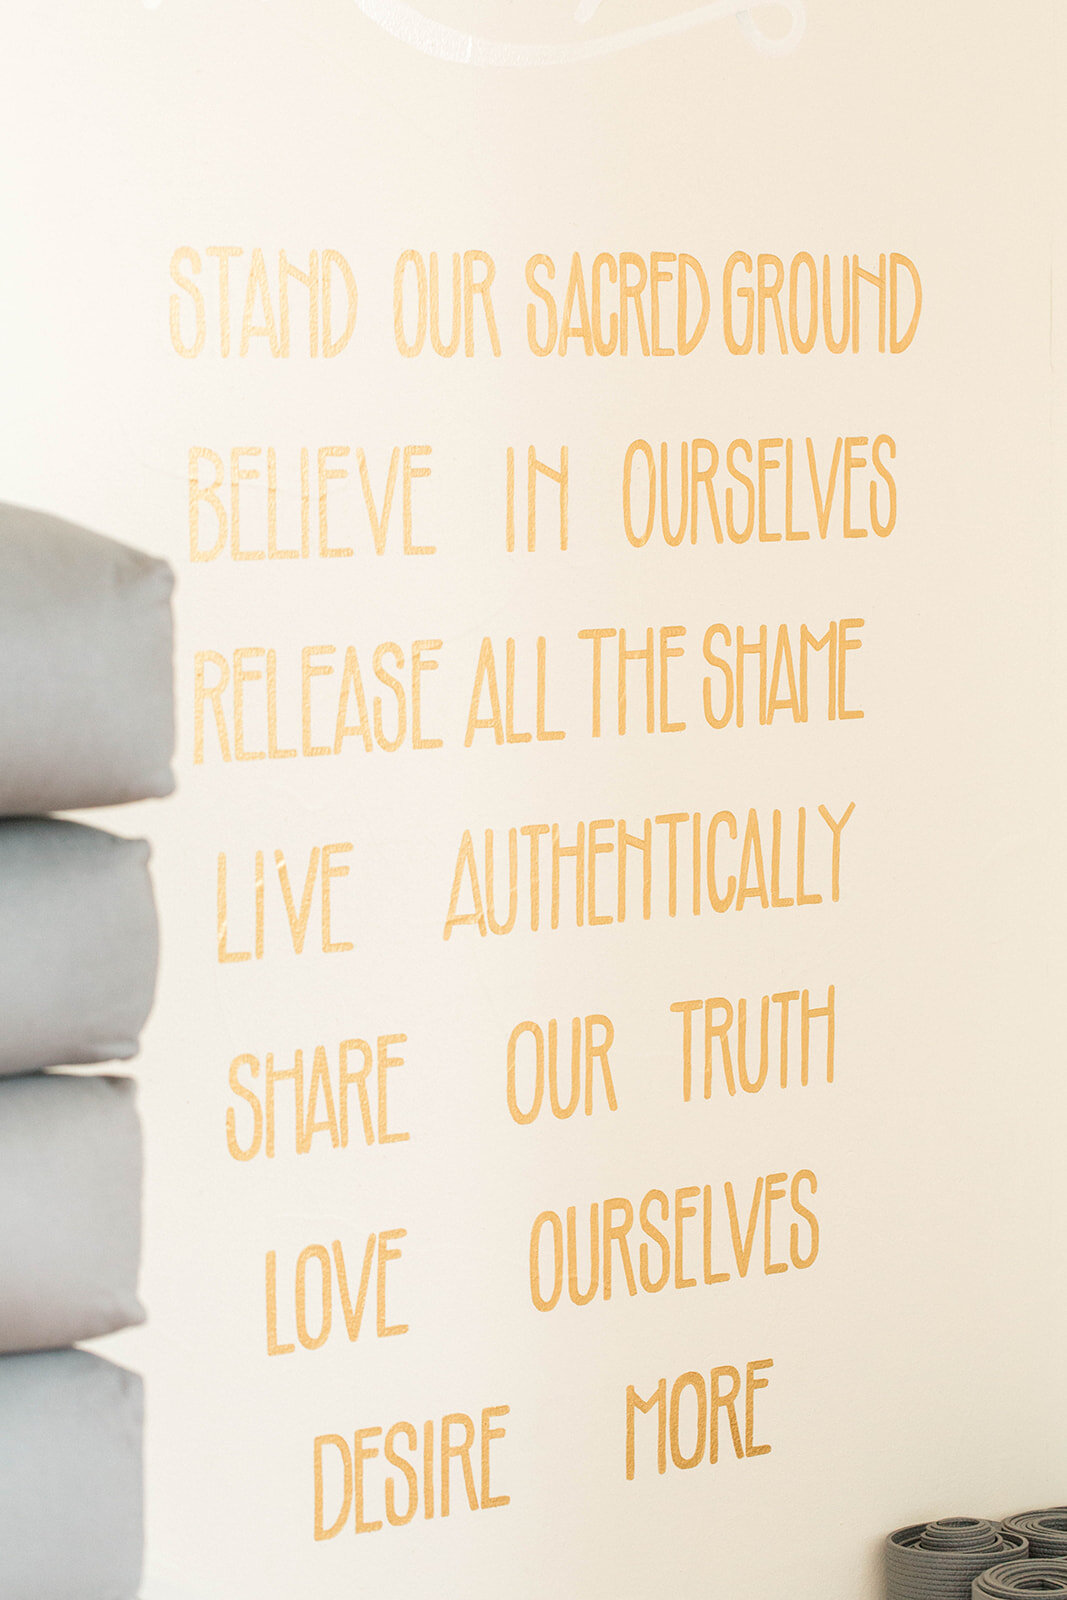 STAND OUR SACRED GROUND
BELIEVE IN OURSELVES
RELEASE ALL THE SHAME
LIVE AUTHENTICALLY
SHARE OUR TRUTH
LOVE OURSELVES
DESIRE MORE